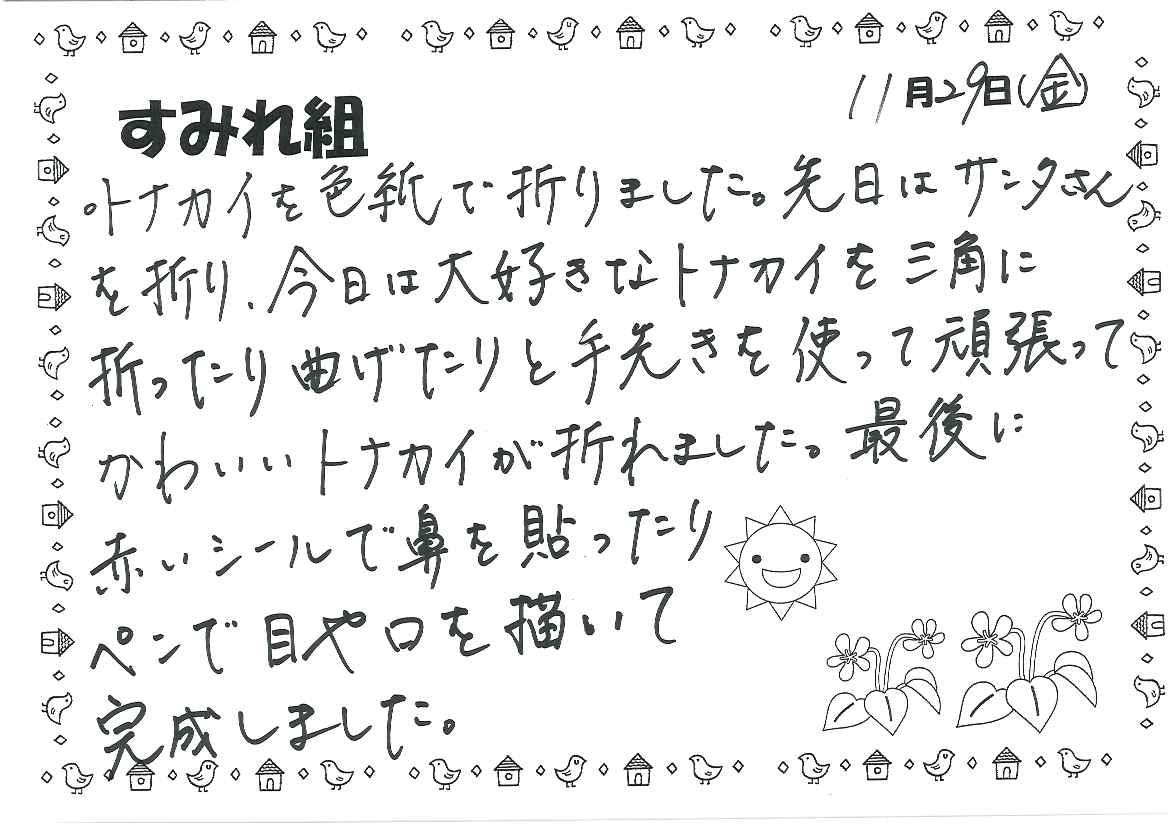 11月29日(金)
すみれ組
。トナカイを色紙で折りました。先日はサンタさん
を折り、今日は大好きなトナカイを三角に
折ったり曲げたりと手先きを使って頑張って
かわいいトナカイが折れました。最後に
赤いシールで鼻を貼ったり
ペンで目や口を描いて
完成しました。